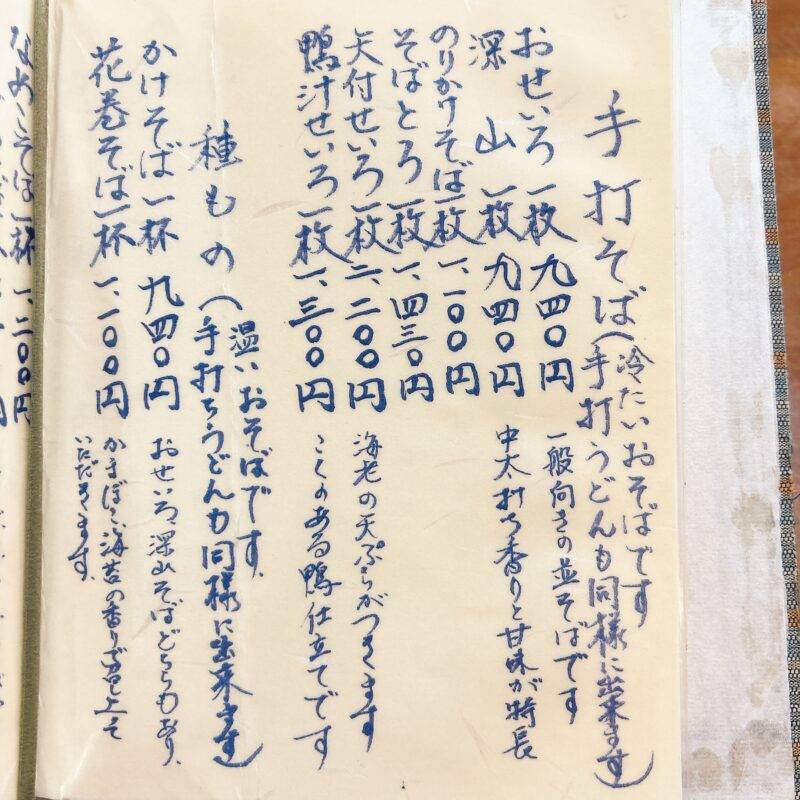 手打そば（冷たいおそばです
手打うどんも同様に出来ます）
おせいろ 一枚 九四〇円 一般向きの並そばです
深山 一枚 九四〇円 中太打ち香りと甘味が特長
のりかけそば 一枚 一、一〇〇円
そばとろ 一枚 一、四三〇円
天付せいろ 一枚 二、二〇〇円 海老の天ぷらがつきます
鴨汁せいろ 一枚 一、三〇〇円 こくのある鴨仕立てです
種もの（温いおそばです、
手打ちうどんも同様に出来ます）
かけそば 一杯 九四〇円 おせいろ、深山そばどちらもあり、
花巻そば 一杯 一、一〇〇円 かまぼこ、海苔の香りで召し上って
いただきます。
なめこそば 一杯 一、二〇〇円